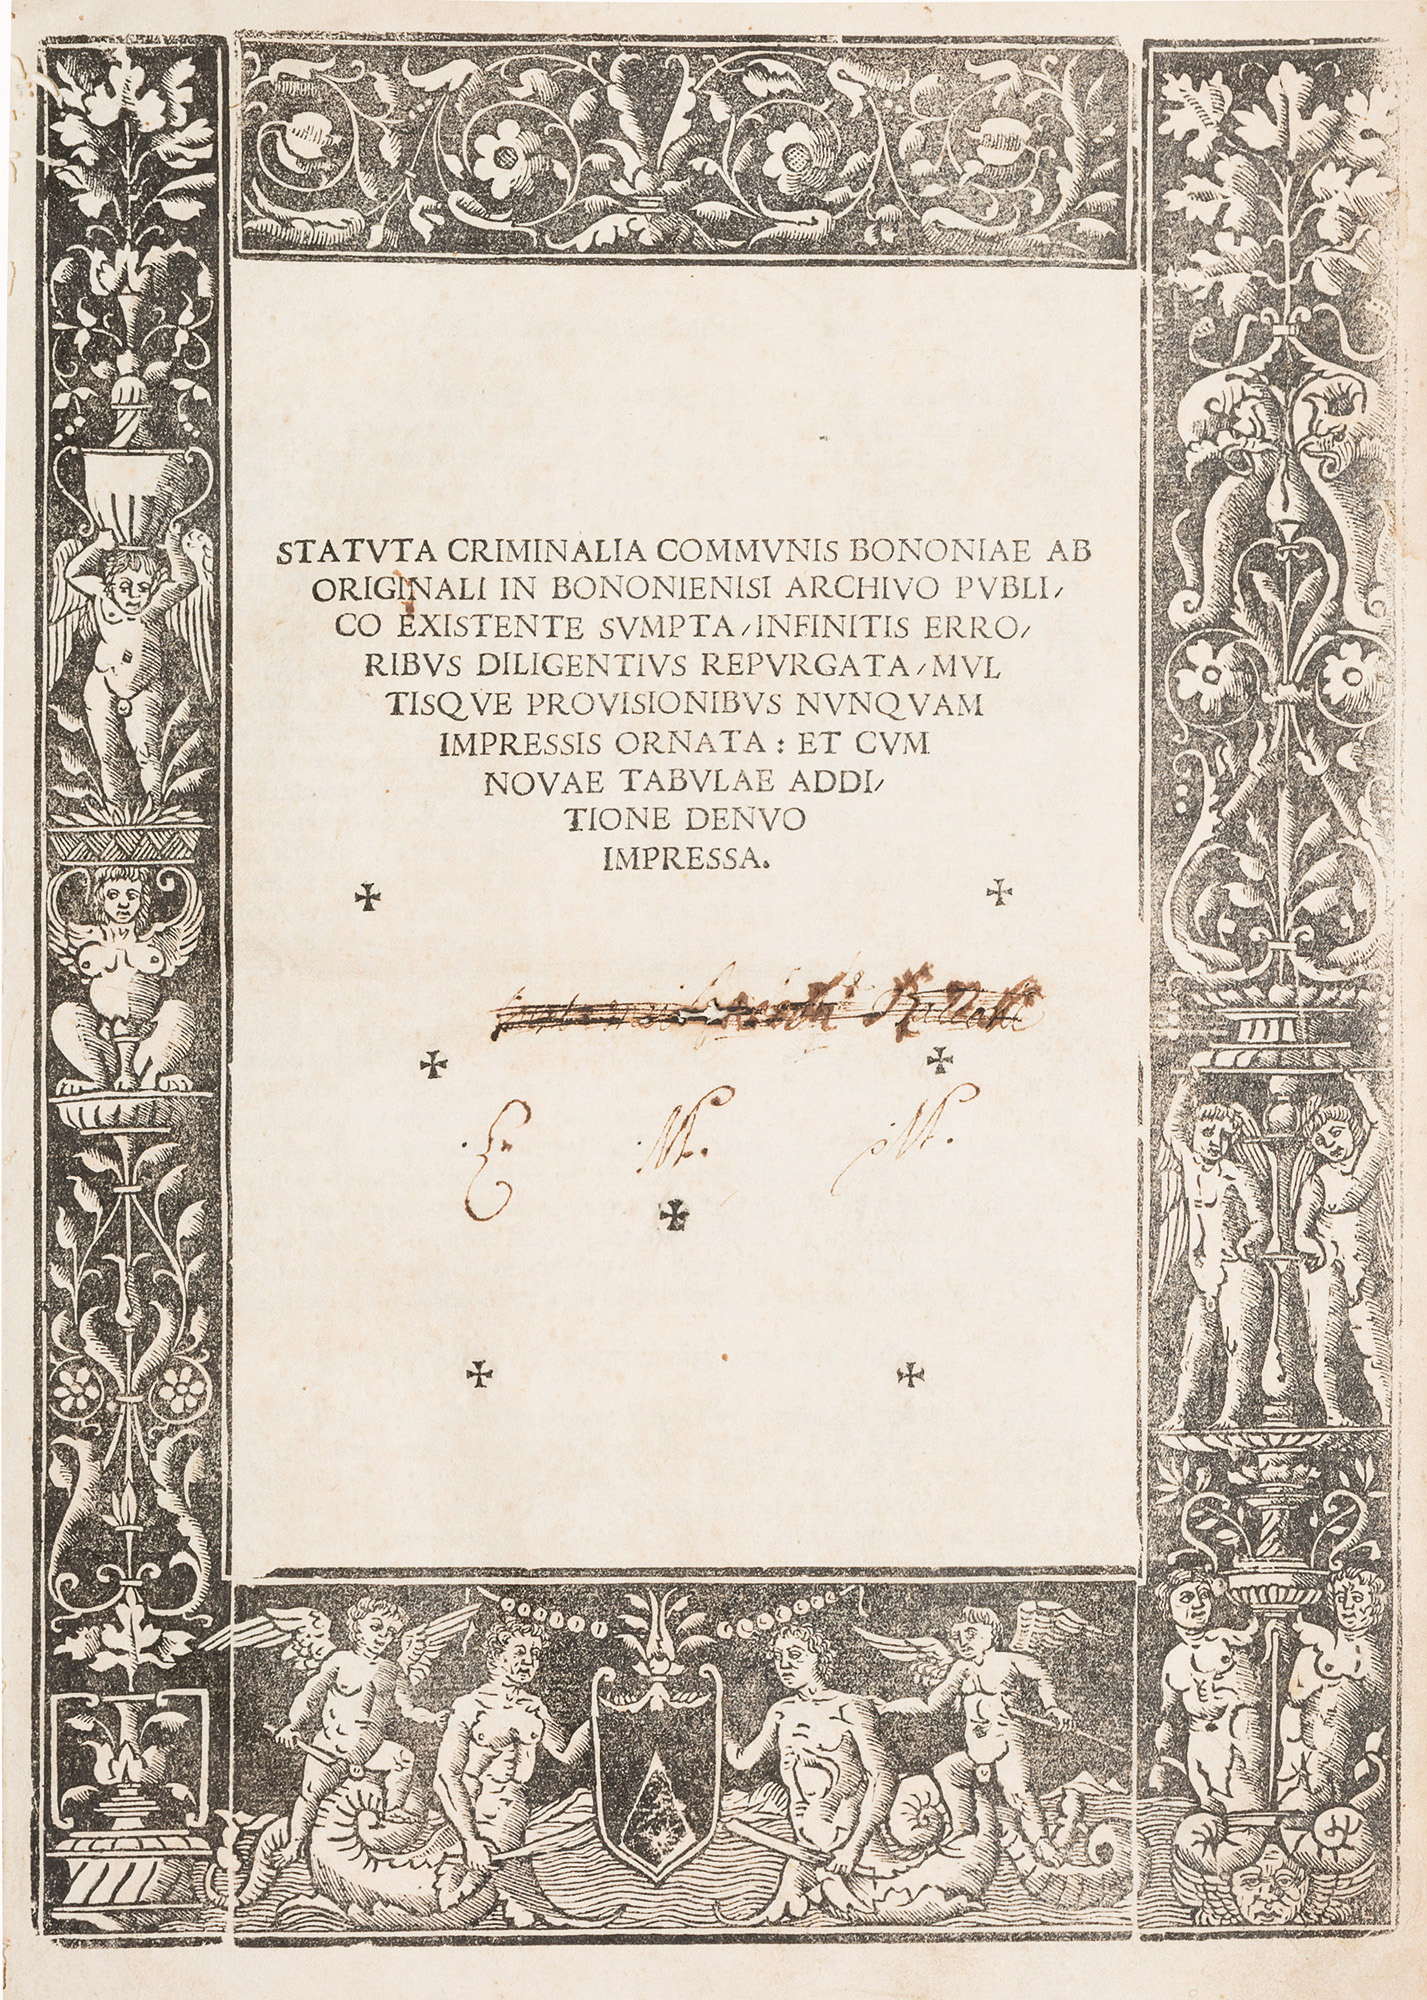 STATVTA CRIMINALIA COMMVNIS BONONIAE AB
ORIGINALI IN BONONIENISI ARCHIVO PVBLI/
CO EXISTENTE SVMPTA/INFINITIS ERRO/
RIBVS DILIGENTIVS REPVRGATA/MVL
TISQVE PROVISIONIBVS NVNQVAM
IMPRESSIS ORNATA : ET CVM
NOVAE TABVLAE ADDI/
TIONE DENVO
IMPRESSA.
.E. .M. .M.